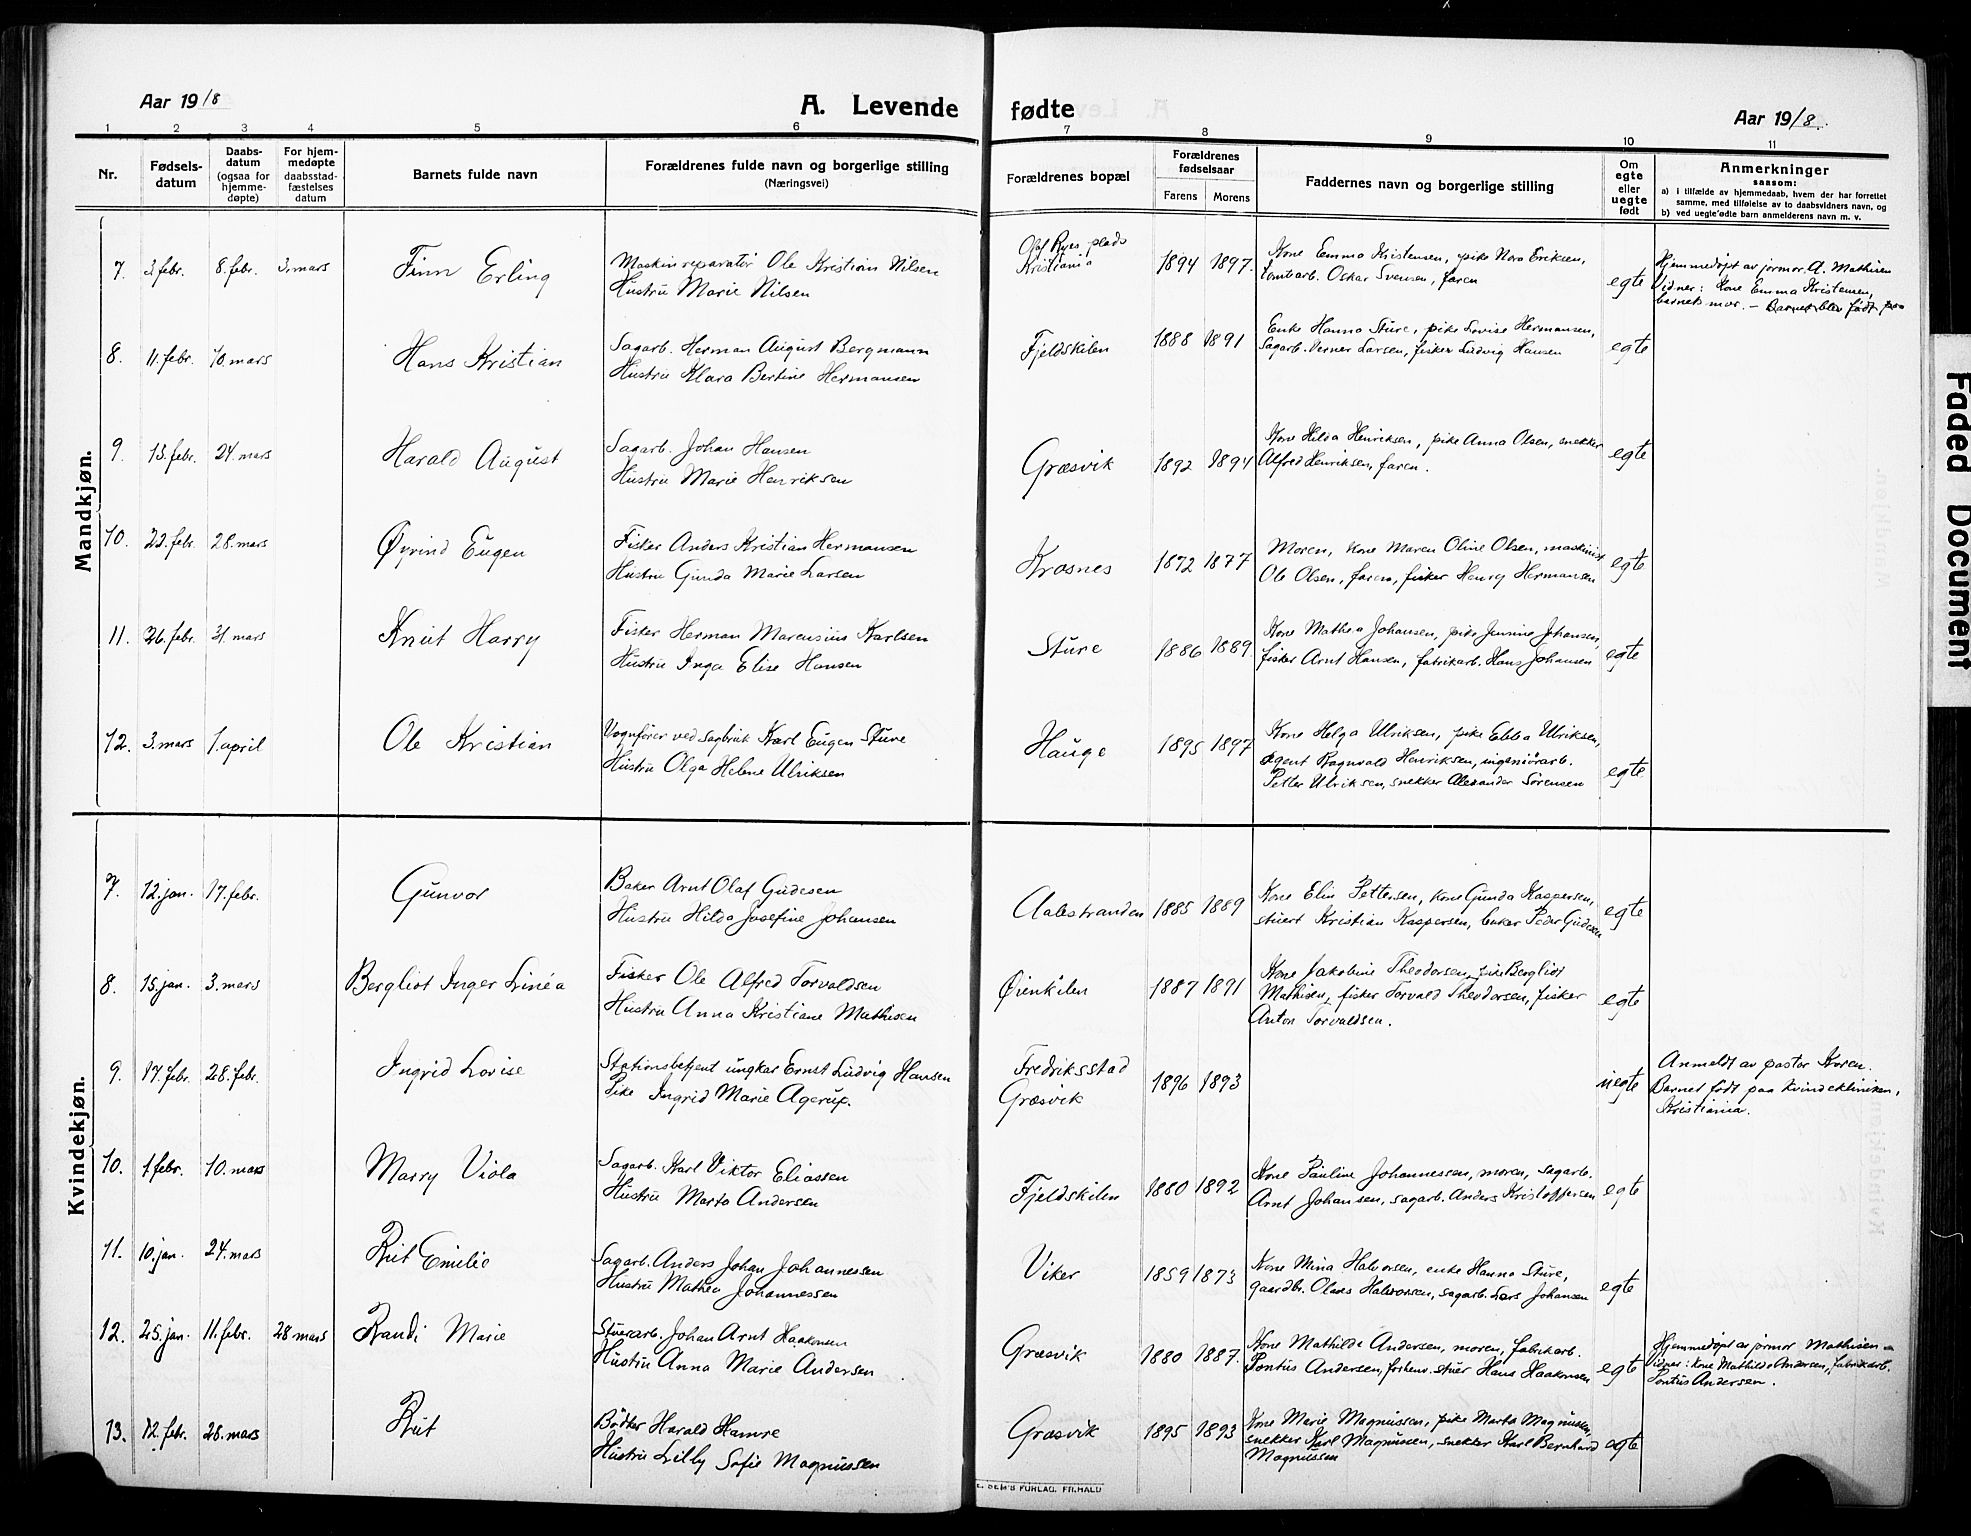 Aar 1918
A. Levende
fødte
Aar 1918.
1 2 3 4 5 6 7 8 9 10 11
Nr.
Fødsels-
datum
Daabs-
datum
(ogsaa for
hjemme-
døpte)
For hjem-
medøpte
daabsstad-
fæstelses
datum
Barnets fulde navn
Forældrenes fulde navn og borgerlige stilling
(Næringsvei)
Forældrenes bopæl
Forældrenes
fødselsaar
Farens Morens
Faddernes navn og borgerlige stilling
Om
egte
eller
uegte
født
Anmerkninger
saasom:
a) i tilfælde av hjemmedaab, hvem der har forrettet
samme, med tilføielse av to daabsvidners navn, og
b) ved uegte fødte barn anmelderens navn m. v.
Mandkjøn.
7. 3. febr. 8. febr. 3. mars Finn Erling
Maskinreparatør Ole Kristian Nilsen
Hustru Marie Nilsen
Olaf Ryes plads
Kristiania
1894 1897.
Kone Emma Kristensen, pike Nora Eriksen,
tomtarb. Oskar Svensen, faren
egte
Hjemmedøpt av jormor A. Mathisen
Vidner: Kone Emma Kristensen,
barnets mor. – Barnet blev født paa
8. 11. febr. 10. mars Hans Kristian
Sagarb. Herman August Bergmann
Hustru Klara Bertine Hermansen
Fjeldskilen
1888 1891
Enke Hanna Sture, pike Lovise Hermansen,
Sagarb. Verner Larsen, fisker Ludvig Hansen
egte
9. 15. febr. 24. mars Harald August
Sagarb. Johan Hansen
Hustru Marie Henriksen
Græsvik
1892 1894
Kone Hilda Henriksen, pike Anna Olsen, snekker
Alfred Henriksen, faren.
egte
10. 22. febr. 28. mars Øyvind Eugen
Fisker Anders Kristian Hermansen
Hustru Gunda Marie Larsen
Kræsnes
1872 1877
Moren, Kone Maren Oline Olsen, maskinist
Ole Olsen, faren, fisker Henry Hermansen
egte
11. 26. febr. 31. mars Knut Harry
Fisker Herman Marensius Karlsen
Hustru Inga Elise Hansen
Sture
1886 1889
Kone Mathea Johansen, pike Jennine Johansen,
fisker Arnt Hansen, fabrikarb. Hans Johansen
egte
12. 3. mars 1. april Ole Kristian
Vognfører ved sagbruk Karl Eugen Sture
Hustru Olga Helene Ulriksen
Hauge
1895 1897
Kone Helga Ulriksen, pike Ebba Ulriksen,
agent Ragnvald Henriksen, ingeniørarb.
Petter Ulriksen, snekker Alexander Sørensen
egte
Kvindekjøn.
7. 12. jan. 17. febr. Gunvor
Baker Arnt Olaf Gudesen
Hustru Hilda Josefine Johansen
Aalestranden
1885 1889
Kone Elin Pettersen, Kone Gunda Kaspersen,
stuert Kristian Kaspersen, baker Peder Gudesen
egte
8. 15. jan. 3. mars Bergliot Inger Linéa
Fisker Ole Alfred Torvaldsen
Hustru Anna Kristiane Mathisen
Øienkilen
1887 1891
Kone Jakobine Theodorsen, pike Bergliot
Mathisen, fisker Torvald Theodorsen, fisker
Anton Torvaldsen.
egte
9. 17. febr. 28. febr. Ingrid Lovise
Stationsbetjent ungkar Ernst Ludvig Hansen
Pike Ingrid Marie Agerup.
Fredriksstad
Græsvik
1896 1893
uegte
Anmeldt av pastor Koren.
Barnet født paa Kvindekliniken,
Kristiania.
10. 1. febr. 10. mars Marry Viola
Sagarb. Karl Viktor Eliassen
Hustru Marta Andersen
Fjeldskilen
1880 1892
Kone Pauline Johannessen, moren, sagarb.
Arnt Johansen, sagarb. Anders Kristoffersen
egte
11. 10. jan. 24. mars Rut Emilie
Sagarb. Anders Johan Johannessen
Hustru Mathea Johannessen
Viker
1859 1873
Kone Mina Halvorsen, enke Hanna Sture,
gaardbr. Olaves Halvorsen, sagarb. Lars Johansen
egte
12. 25. jan. 11. febr. 28 mars Randi Marie
Stuerarb. Johan Arnt Haakonsen
Hustru Anna Marie Andersen
Græsvik
1880 1887.
Kone Mathilde Andersen, moren, fabrikarb.
Pontus Andersen, forhenv. stuer Hans Haakonsen
egte
Hjemmedøpt av jormor Mathisen
Vidner: Kone Mathilde Andersen, fabrikarb.
Pontus Andersen.
13. 12. febr. 28. mars Rut
Bødker Harald Hamre
Hustru Lilly Sofie Magnussen
Græsvik
1895 1893
Kone Marie Magnussen, pike Marta Magnussen,
snekker Karl Magnussen, snekker Karl Bernhard
Magnussen
egte
FORLAG, FR.HALD
Faded Document